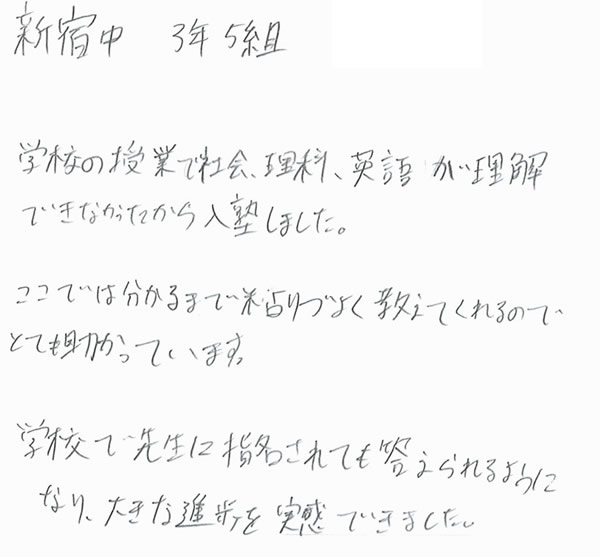 新宿中 3年5組
学校の授業で社会、理科、英語が理解
できなかったから入塾しました。
ここでは分かるまで粘りづよく教えてくれるので
とても助かっています。
学校で先生に指名されても答えられるように
なり、大きな進歩を実感できました。